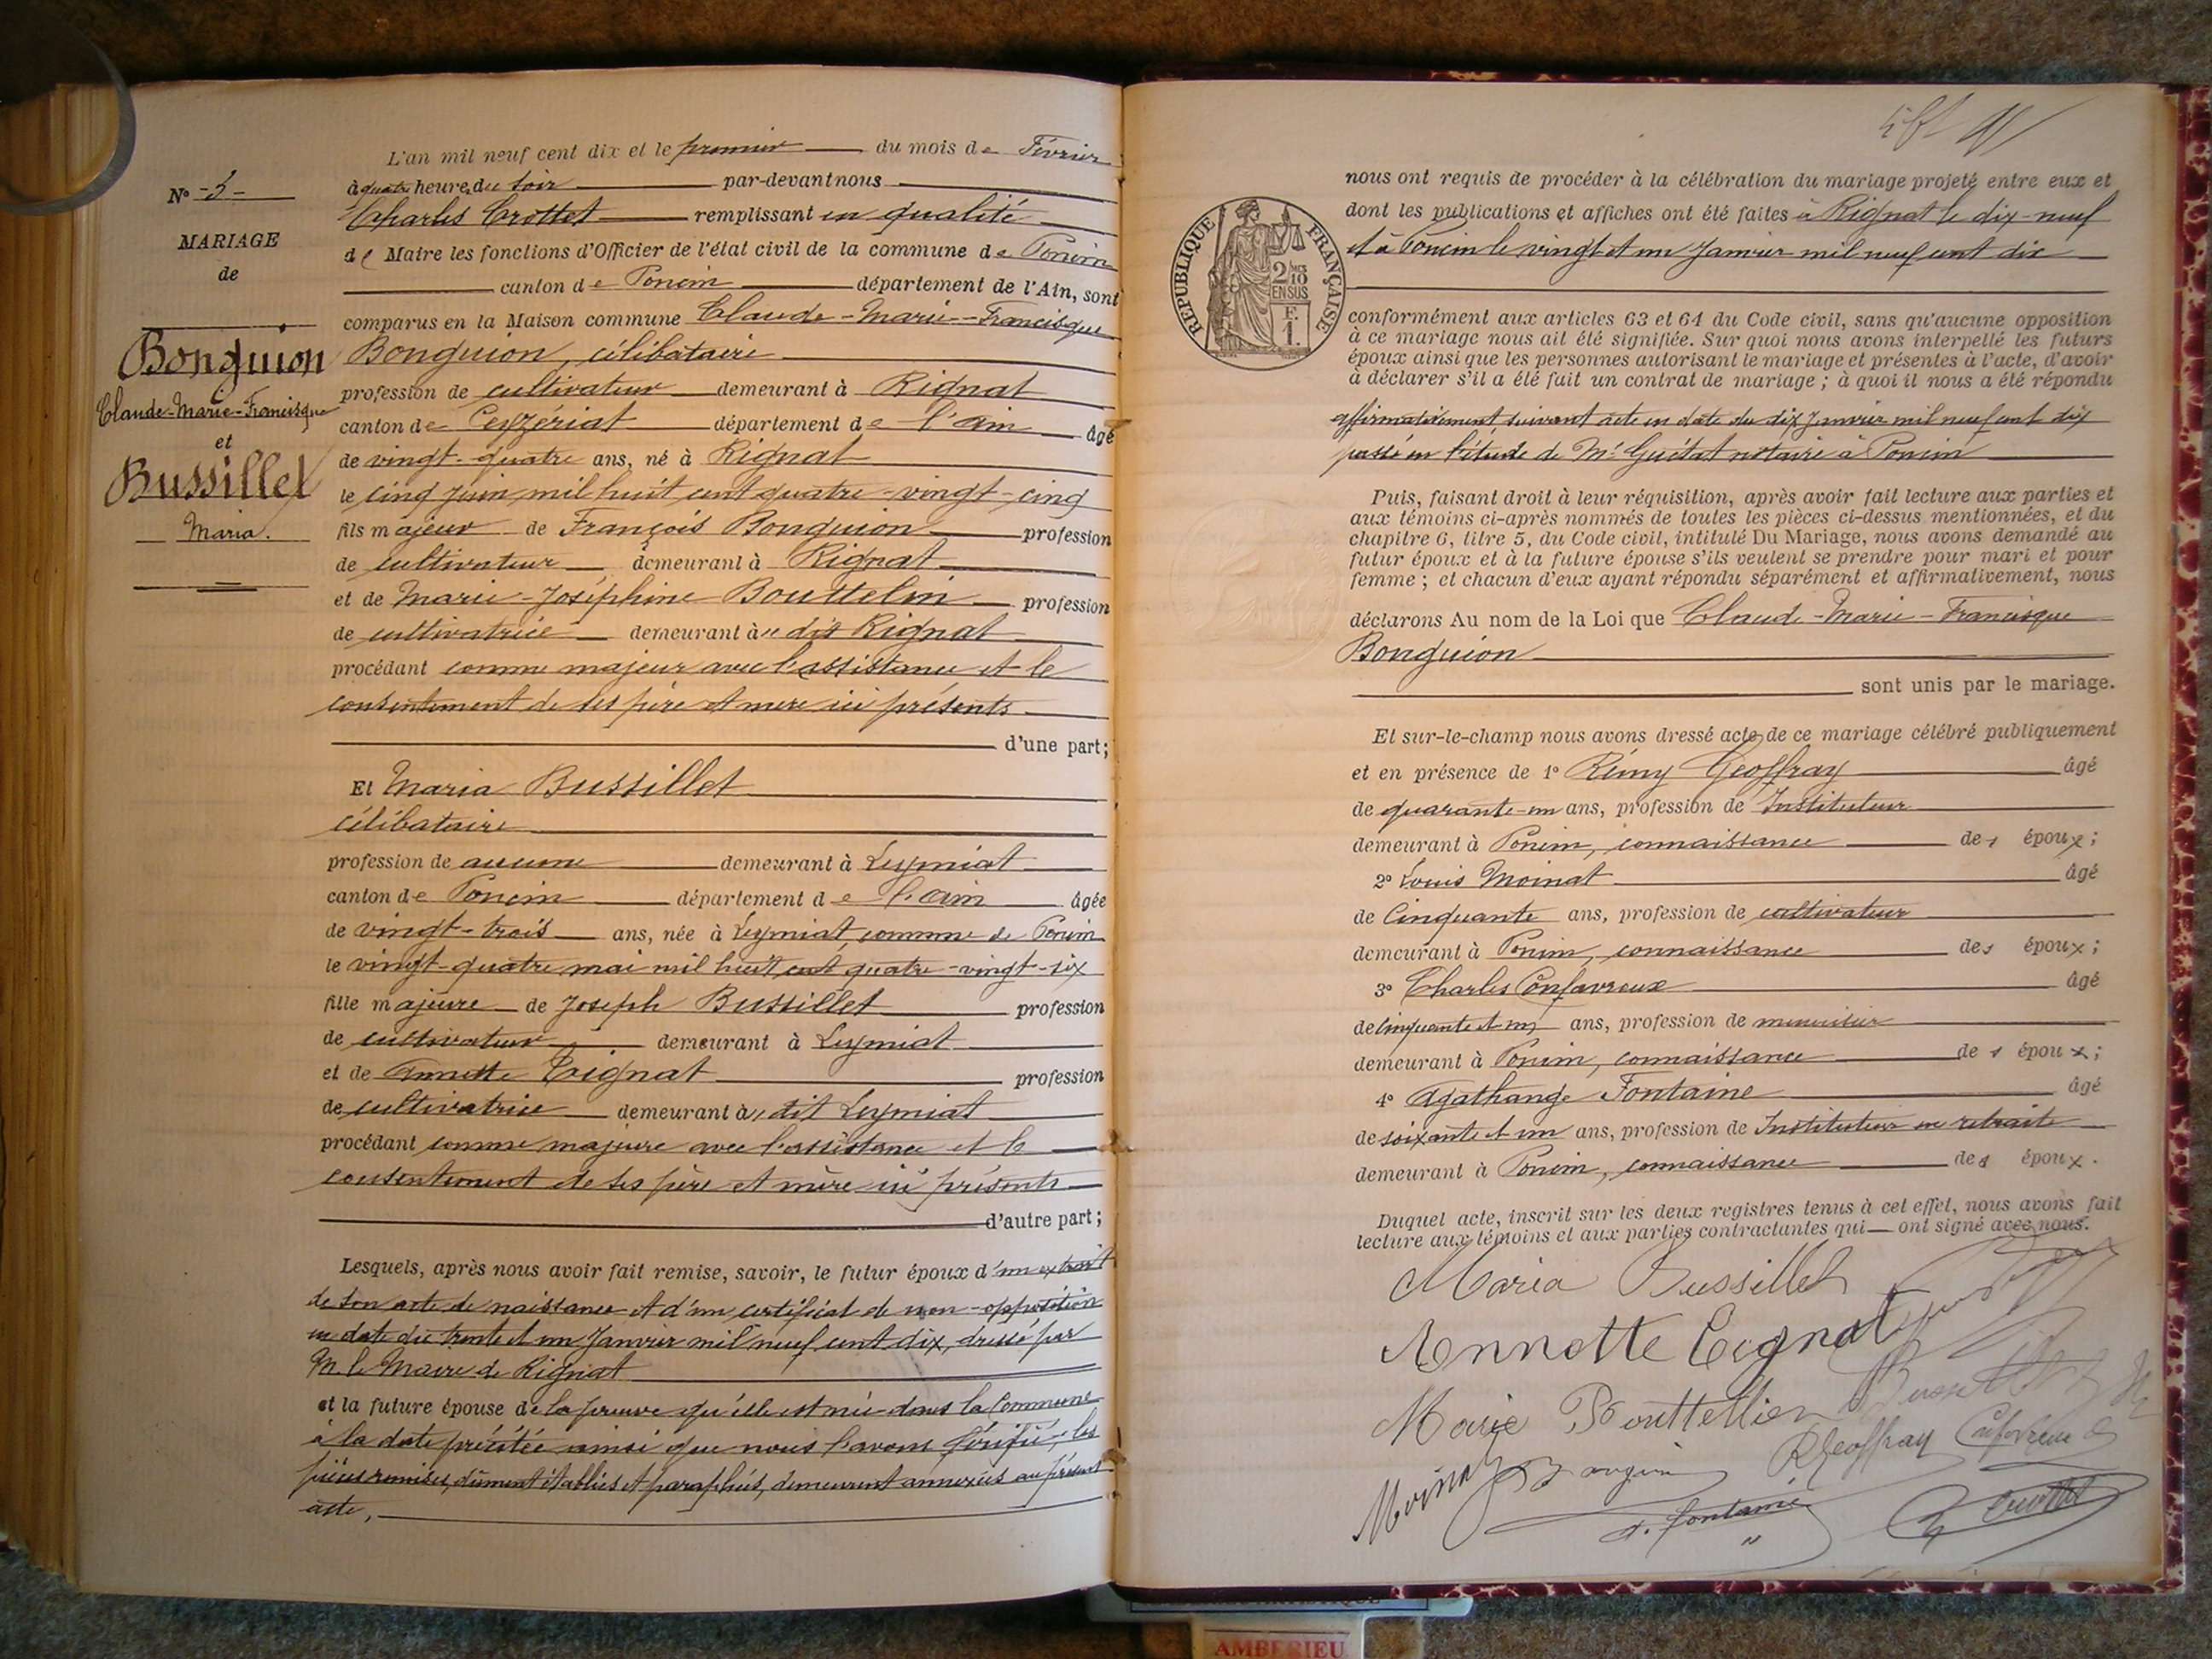 L'an mil neuf cent dix et le premier du mois de Février
à quatre heures du soir par-devant nous
Charles Crottet remplissant en qualité
de Maire les fonctions d'Officier de l'état civil de la commune de Poncin
canton de Poncin département de l'Ain, sont
comparus en la Maison commune Claude-Marie-Francisque
Bonguion, célibataire
profession de cultivateur demeurant à Rignat
canton de Ceyzériat département de l'ain âgé
de vingt-quatre ans, né à Rignat
le cinq juin mil huit cent quatre-vingt-cinq
fils majeur de François Bonguion profession
de cultivateur demeurant à Rignat
et de Marie-Joséphine Bouttelin profession
de cultivatrice demeurant à dit Rignat
procédant comme majeur avec l'assistance et le
consentement de ses père et mère ici présents
d'une part;
Et Maria Bussillet
célibataire
profession de aucune demeurant à Leymiat
canton de Poncin département de l'ain âgée
de vingt-trois ans, née à Leymiat, commune de Poncin
le vingt-quatre mai mil huit cent quatre-vingt-six
fille majeure de Joseph Bussillet profession
de cultivateur demeurant à Leymiat
et de Annette Tignat profession
de cultivatrice demeurant à dit Leymiat
procédant comme majeure avec l'assistance et le
consentement de ses père et mère ici présents
d'autre part;
Lesquels, après nous avoir fait remise, savoir, le futur époux d'un extrait
de son acte de naissance et d'un certificat de non-opposition
en date du trente et un Janvier mil neuf cent dix, dressé par
M. le Maire de Rignat
et la future épouse de la preuve qu'elle est née dans la Commune
à la date précitée ainsi que nous l'avons vérifié; les
pièces remises, dûment établies et paraphées, demeurent annexées au présent
acte,
N° -3-
MARIAGE
de
Bonguion
Claude-Marie-Francisque
et
Bussillet
Maria.
nous ont requis de procéder à la célébration du mariage projeté entre eux et
dont les publications et affiches ont été faites à Rignat le dix-neuf
et à Poncin le vingt et un Janvier mil neuf cent dix
RÉPUBLIQUE FRANÇAISE
2/10
EN SUS
F.
1.
conformément aux articles 63 et 64 du Code civil, sans qu'aucune opposition
à ce mariage nous ait été signifiée. Sur quoi nous avons interpellé les futurs
époux ainsi que les personnes autorisant le mariage et présentes à l'acte, d'avoir
à déclarer s'il a été fait un contrat de mariage ; à quoi il nous a été répondu
affirmativement suivant acte en date du dix Janvier mil neuf cent dix
passé en l'étude de Me Guétat notaire à Poncin
Puis, faisant droit à leur réquisition, après avoir fait lecture aux parties et
aux témoins ci-après nommés de toutes les pièces ci-dessus mentionnées, et du
chapitre 6, titre 5, du Code civil, intitulé Du Mariage, nous avons demandé au
futur époux et à la future épouse s'ils veulent se prendre pour mari et pour
femme ; et chacun d'eux ayant répondu séparément et affirmativement, nous
déclarons Au nom de la Loi que Claude-Marie-Francisque
Bonguion
sont unis par le mariage.
Et sur-le-champ nous avons dressé acte de ce mariage célébré publiquement
et en présence de 1° Rémy Geoffray âgé
de quarante-un ans, profession de Instituteur
demeurant à Poncin, connaissance des époux;
2° Louis Moinat âgé
de Cinquante ans, profession de cultivateur
demeurant à Poncin, connaissance des époux;
3° Charles Confavreux âgé
de cinquante et un ans, profession de menuisier
demeurant à Poncin, connaissance des époux;
4° Agathange Fontaine âgé
de soixante et un ans, profession de Instituteur en retraite
demeurant à Poncin, connaissance des époux.
Duquel acte, inscrit sur les deux registres tenus à cet effet, nous avons fait
lecture aux témoins et aux parties contractantes qui ont signé avec nous.
Maria Bussillet
Annette Tignat
Marie Bouttellier
RGeoffray Confavreux
Moinat
A. Fontaine
AMBERIEU